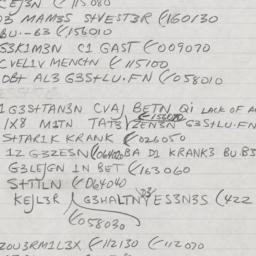 CEJ3N (115080
D3 MAM3S SHVEST3R (160130
BU.-63 (156010
S3K1M3N C1 GAST (009070
CVEL1V MENCTN (115100
OBT AL3 G3SHLU.FN (058010
1G3SHTAN3N CVAJ BETN Gi LACK OF A
1X8 M1TN TATB ZEN3N G3SHLU.FN
SHTAR1K KRANK (026050
12 G3ZESN (064020 BA D1 KRANK3 BU.B3
G3LEJGN IN BET (163060
SHTTLN (064040
KEJL3R G3HALTN YES3N3S (422
(058030
ZOU3RM1L3X (112130 (112070